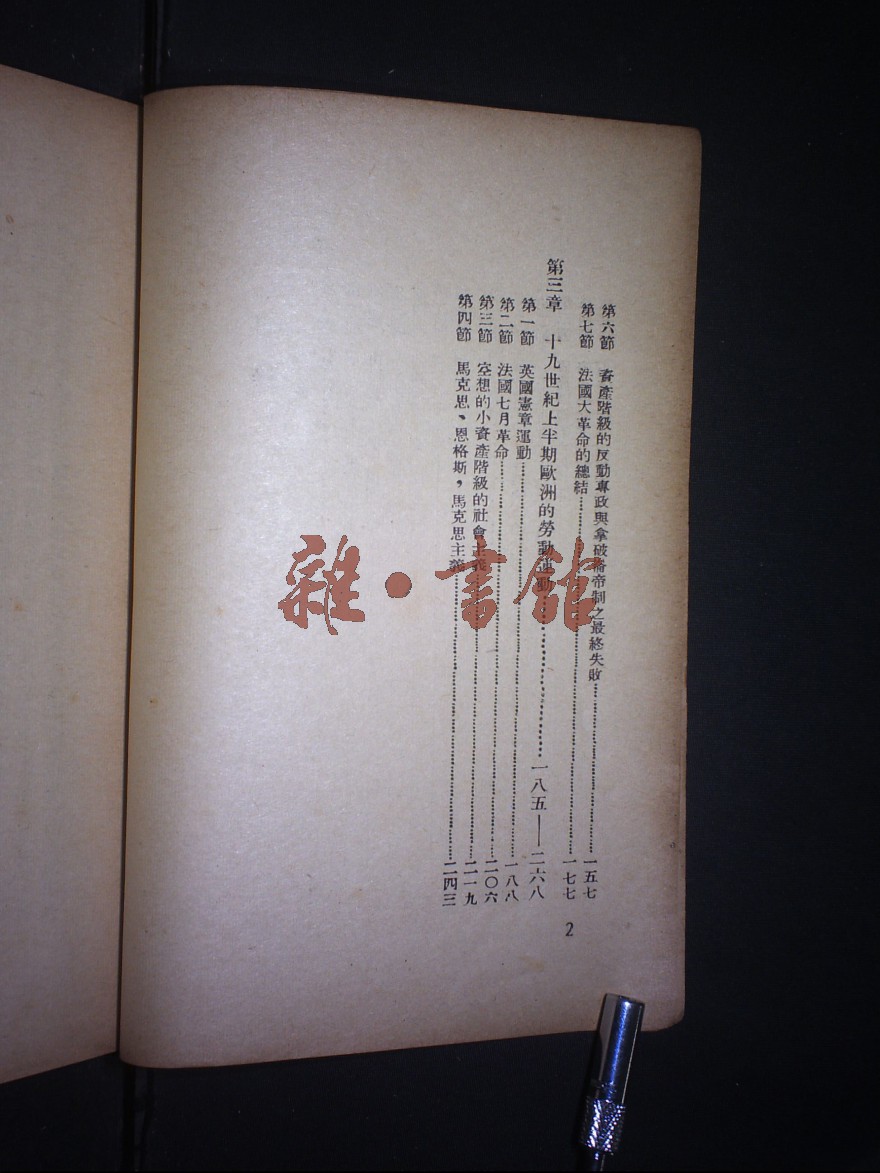 第六節 資產階級的反動專政與拿破崙帝制之最終失敗……一五七
第七節 法國大革命的總結……一七七
第三章 十九世紀上半期歐洲的勞動運動……一八五——二六八
第一節 英國憲章運動……一八八
第二節 法國七月革命……二〇六
第三節 空想的小資產階級的社會主義……二一九
第四節 馬克思、恩格斯,馬克思主義……二四三
2
雜·書館